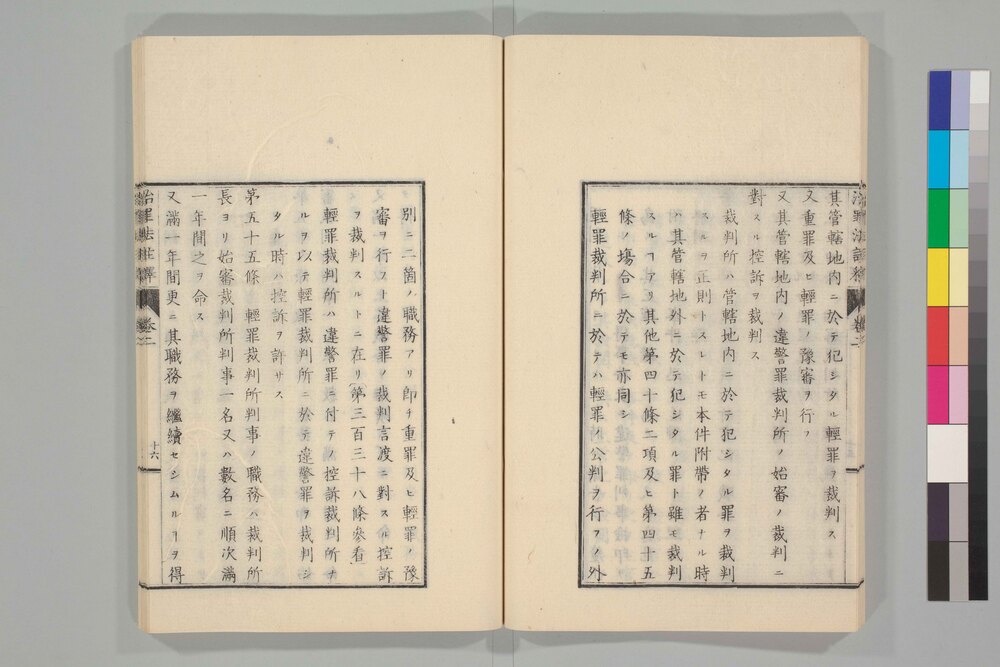 其管轄地内ニ於テ犯シタル輕罪ヲ裁判ス
又重罪及ヒ輕罪ノ豫審ヲ行フ
又其管轄地内ノ違警罪裁判所ノ始審ノ裁判ニ
對スル控訴ヲ裁判ス
裁判所ハ管轄地内ニ於テ犯シタル罪ヲ裁判
スルヲ正則トスレトモ本件附帶ノ者ナル時
ハ其管轄地外ニ於テ犯シタル罪ト雖モ裁判
スルヿアリ其他第四十條二項及ヒ第四十五
條ノ場合ニ於テモ亦同シ
輕罪裁判所ニ於テハ輕罪ノ公判ヲ行フノ外
別ニ二箇ノ職務アリ即チ重罪及ヒ輕罪ノ豫
審ヲ行フト違警罪ノ裁判言渡ニ對スル控訴
ヲ裁判スルトニ在リ第三百三十八條參看
輕罪裁判所ハ違警罪ニ付テノ控訴裁判所ナ
ルヲ以テ輕罪裁判所ニ於テ違警罪ヲ裁判シ
タル時ハ控訴ヲ許サス
第五十五條 輕罪裁判所判事ノ職務ハ裁判所
長ヨリ始審裁判所判事一名又ハ數名ニ順次滿
一年間之ヲ命ス
又滿一年間更ニ其職務ヲ繼續セシムルヿヲ得
卷二
十六